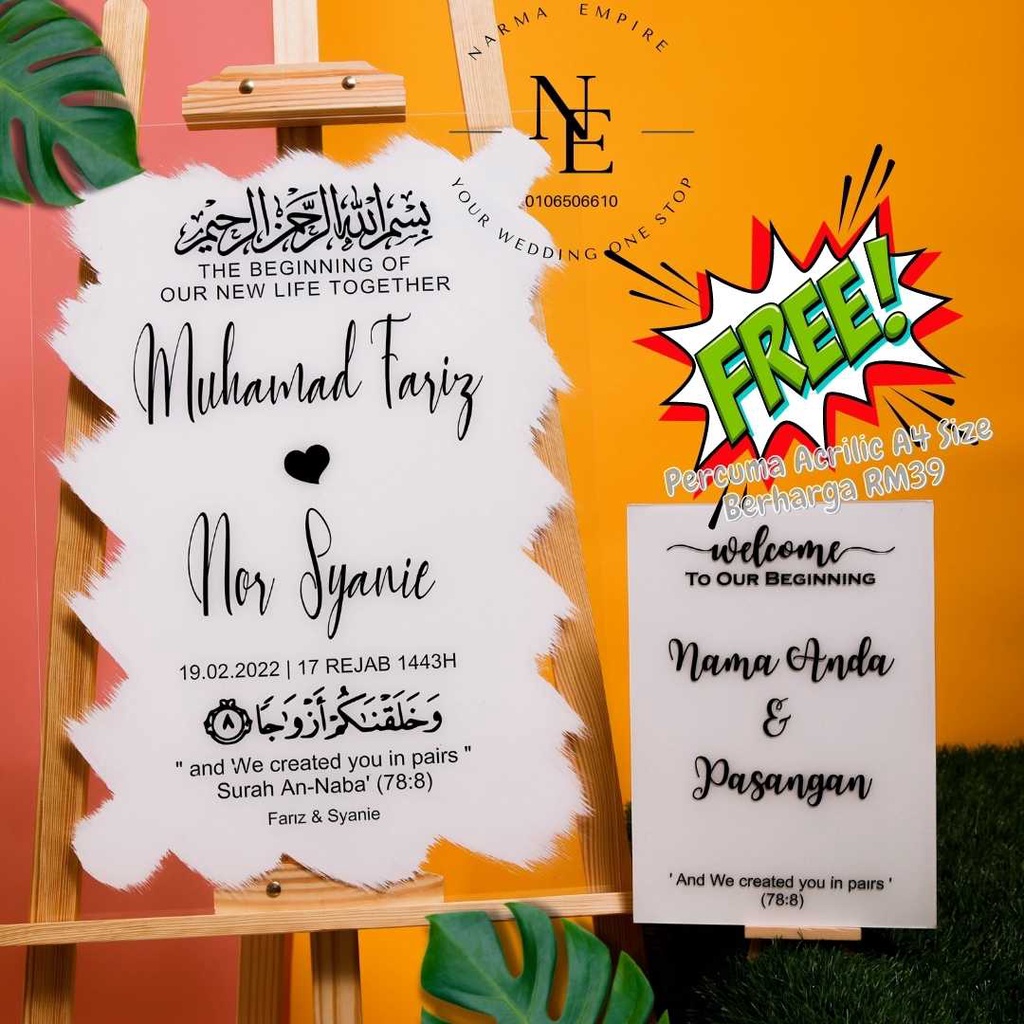 NARMA EMPIRE
NE
0106506610
YOUR WEDDING ONE STOP
بسم الله الرحمن الرحيم
THE BEGINNING OF
OUR NEW LIFE TOGETHER
Muhamad Fariz
Nor Syanie
19.02.2022 | 17 REJAB 1443H
وَخَلَقْنَـٰكُمْ أَزْوَٰجًا ٨
" and We created you in pairs "
Surah An-Naba' (78:8)
Fariz & Syanie
FREE!
Percuma Acrilic A4 Size
Berharga RM39
welcome
TO OUR BEGINNING
Nama Anda
&
Pasangan
' And We created you in pairs '
(78:8)